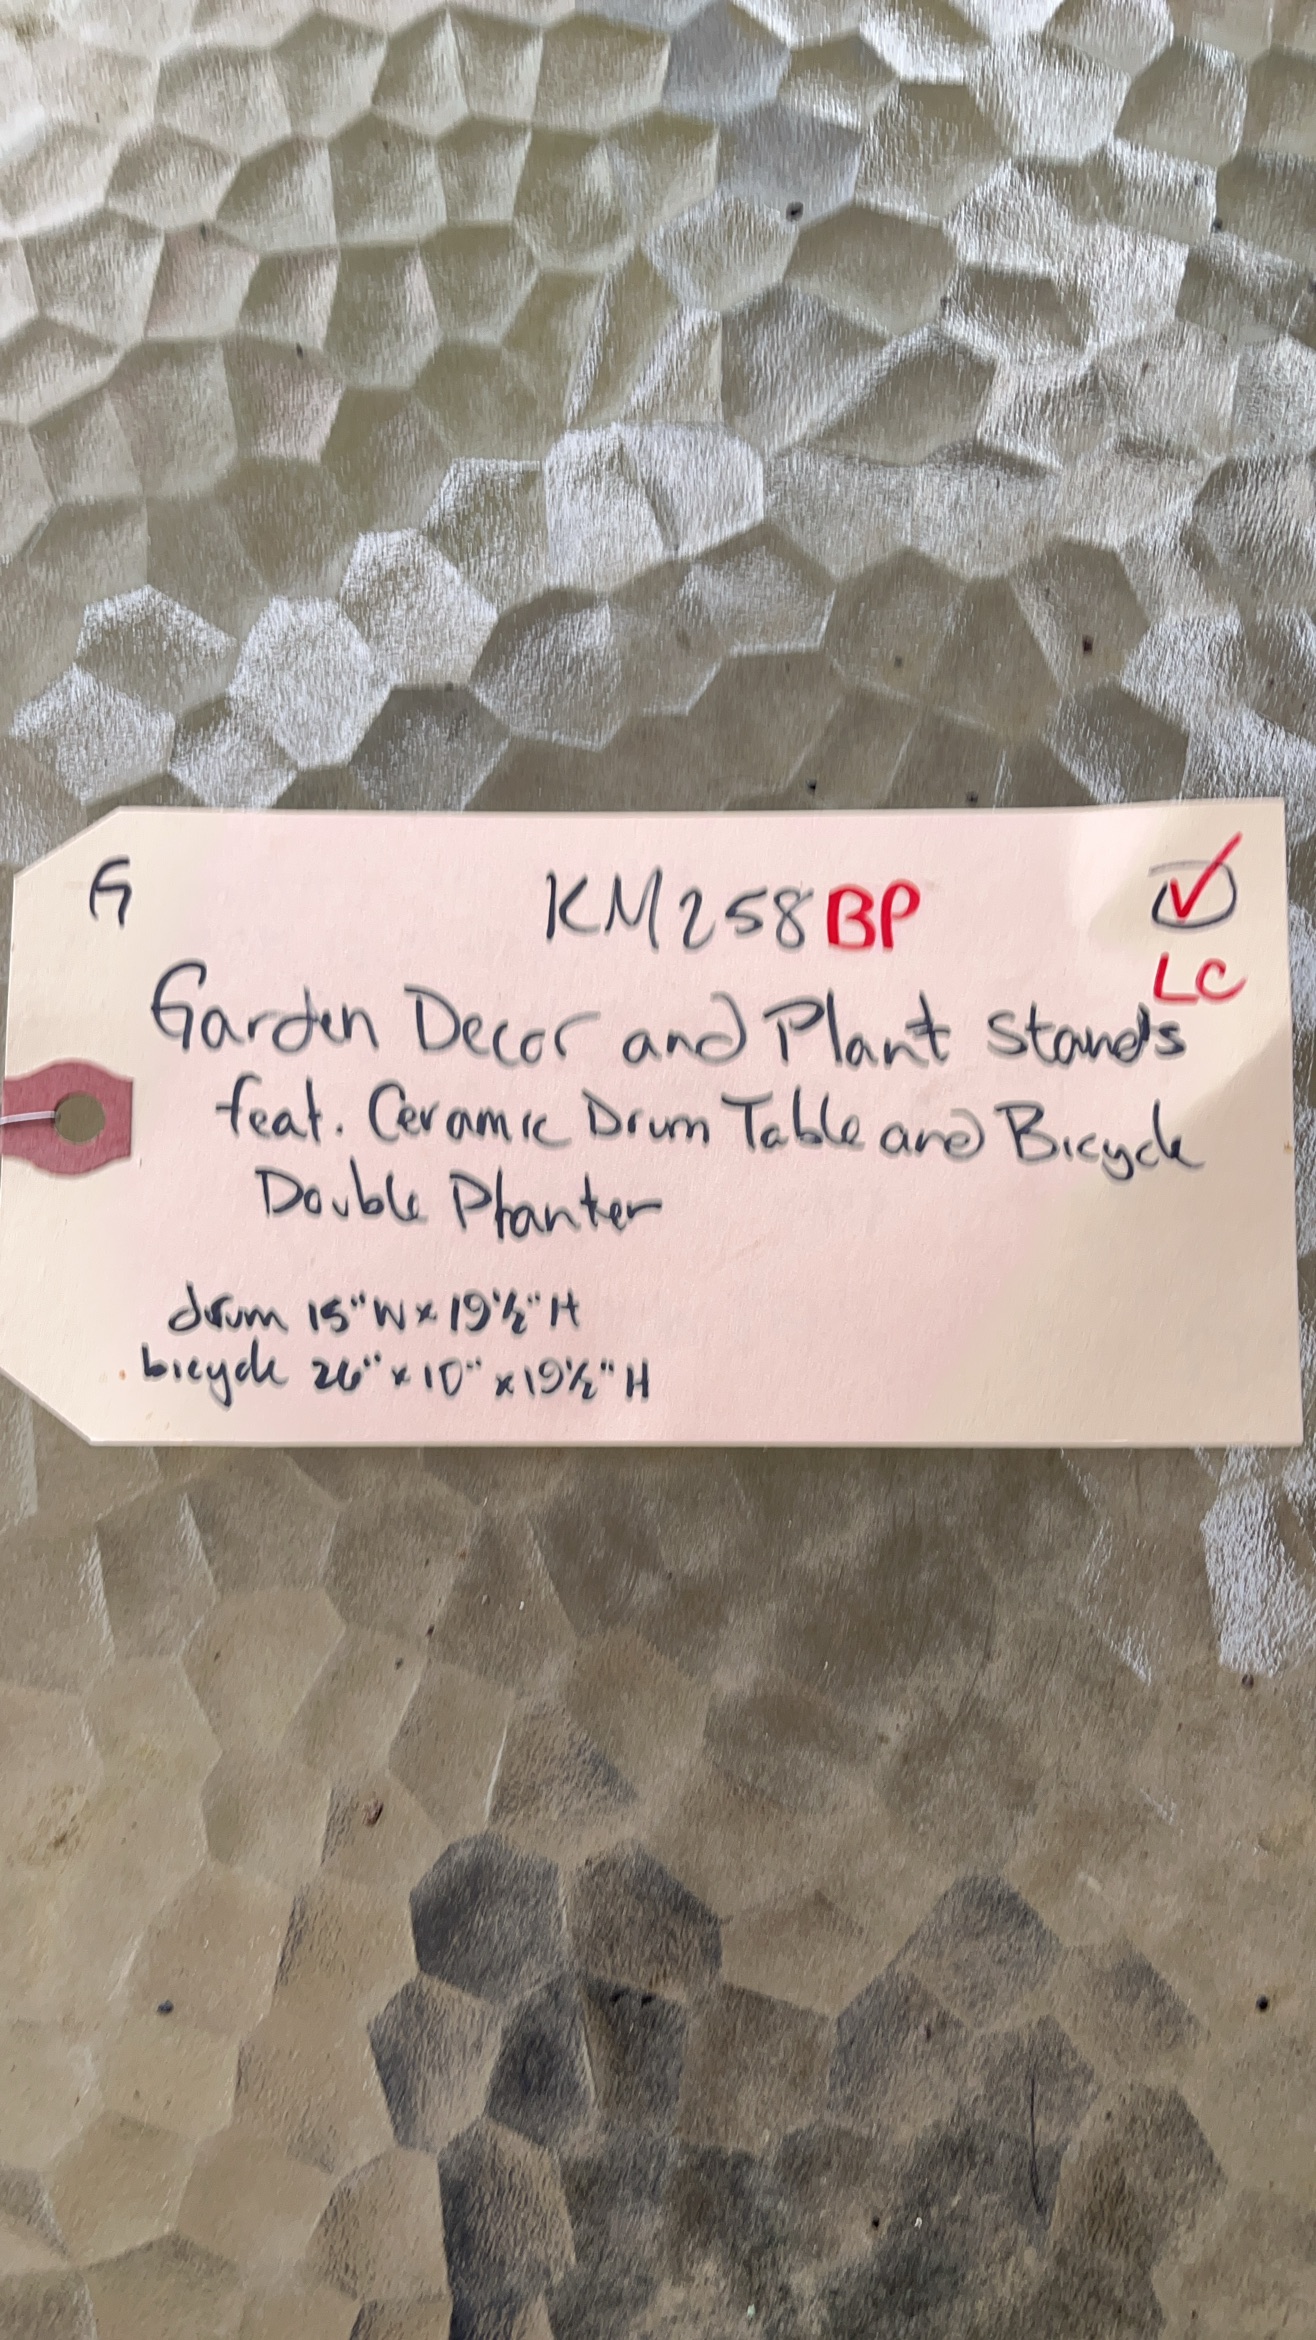 G KM258BP
LC
Garden Decor and Plant Stands
feat. Ceramic Drum Table and Bicycle
Double Planter
drum 15"W x 19½" H
bicycle 26" x 10" x 19½" H